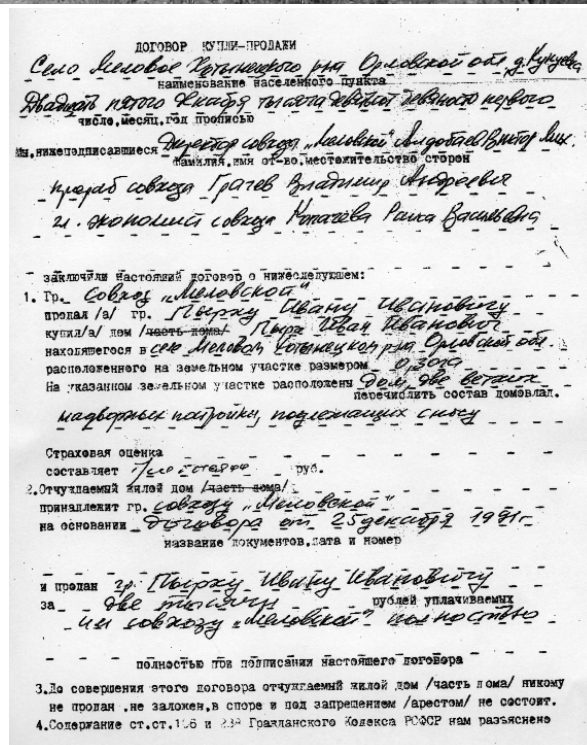 ДОГОВОР КУПЛИ-ПРОДАЖИ
Село Меловое Хотынецкого р-на Орловской обл д. Кукуевка
наименование населенного пункта
Двадцать пятого декабря тысяча девятьсот девяносто первого
число, месяц, год прописью
Мы, нижеподписавшиеся Директор совхоза „Меловской" Виктор Мих.
фамилия, имя от-во, местожительство сторон
прораб совхоза Грачев Владимир Андреевич
гл. экономист совхоза Васильевна
заключили настоящий договор о нижеследующем:
1. Гр. Совхоз „Меловской"
продал /а/ гр. Пырху Ивану Ивановичу
купил/а/ дом /часть дома/ Пырх Иван Иванович
находящегося в селе Меловом Хотынецком р-на Орловской обл.
расположенного на земельном участке размером 0,30га
На указанном земельном участке расположены Дом, две ветхих
перечислить состав домовлад.
надворных постройки, подлежащих сносу
Страховая оценка
составляет руб.
2. Отчуждаемый жилой дом /часть дома/
принадлежит гр. совхозу „Меловской"
на основании Договора от 25 декабря 1991г
название документов, дата и номер
и продан гр. Пырху Ивану Ивановичу
за две тысячи рублей уплачиваемых
им совхозу „Меловской" полностью
полностью при подписании настоящего договора
3. До совершения этого договора отчуждаемый жилой дом /часть дома/ никому
не продан, не заложен, в споре и под запрещением /арестом/ не состоит.
4. Содержание ст.ст. и 239 Гражданского Кодекса РСФСР нам разъяснено